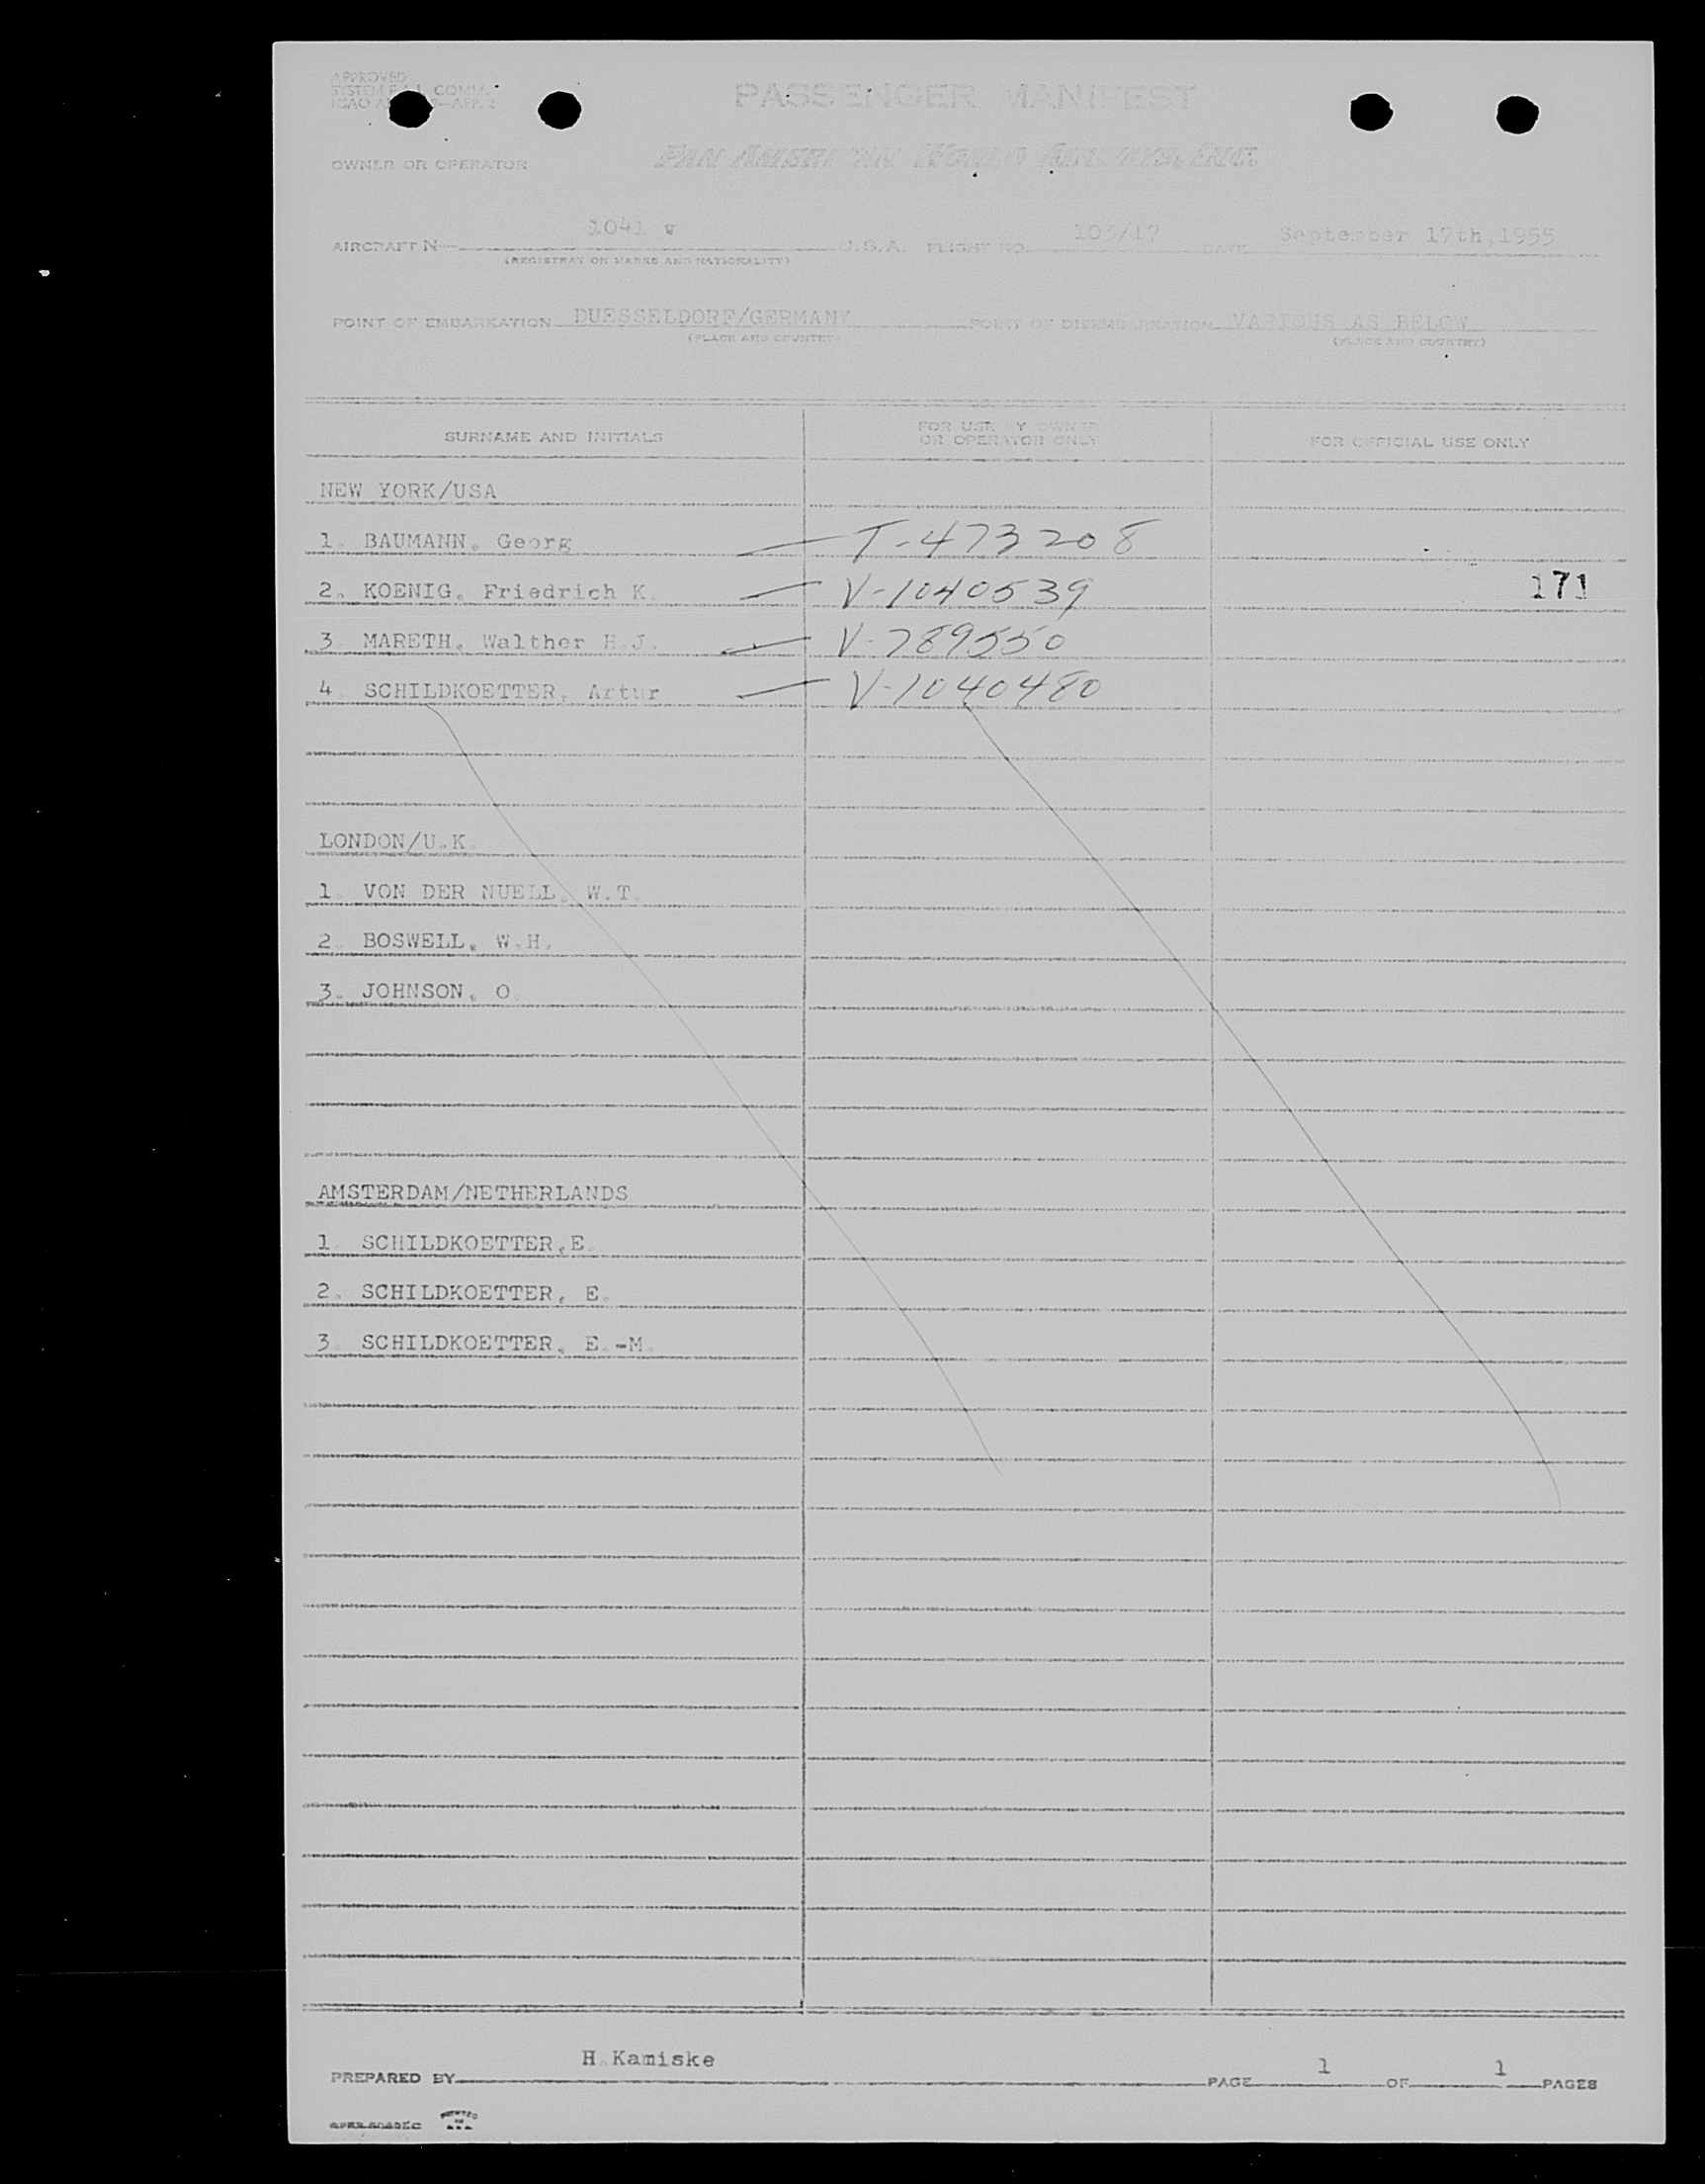 APPROVED
PASSENGER MANIFEST
OWNER OR OPERATOR
PAN AMERICAN WORLD AIRWAYS, INC.
AIRCRAFT N 1041 V U.S.A. FLIGHT NO. 103/17 DATE September 17th, 1955
(REGISTRAY OR MARKS AND NATIONALITY)
POINT OF EMBARKATION DUESSELDORF/GERMANY POINT OF DISEMBARKATION VARIOUS AS BELOW
(PLACE AND COUNTRY) (PLACE AND COUNTRY)
SURNAME AND INITIALS FOR USE BY OWNER OR OPERATOR ONLY FOR OFFICIAL USE ONLY
NEW YORK/USA
1. BAUMANN, Georg T-473208
2. KOENIG, Friedrich K. V-1040539 171
3. MARETH, Walther H.J. V-789550
4. SCHILDKOETTER, Artur V-1040480
LONDON/U.K.
1. VON DER NUELL, W.T.
2. BOSWELL, W.H.
3. JOHNSON, O.
AMSTERDAM/NETHERLANDS
1. SCHILDKOETTER,E.
2. SCHILDKOETTER, E.
3. SCHILDKOETTER, E.-M.
H.Kamiske
PREPARED BY PAGE 1 OF 1 PAGES